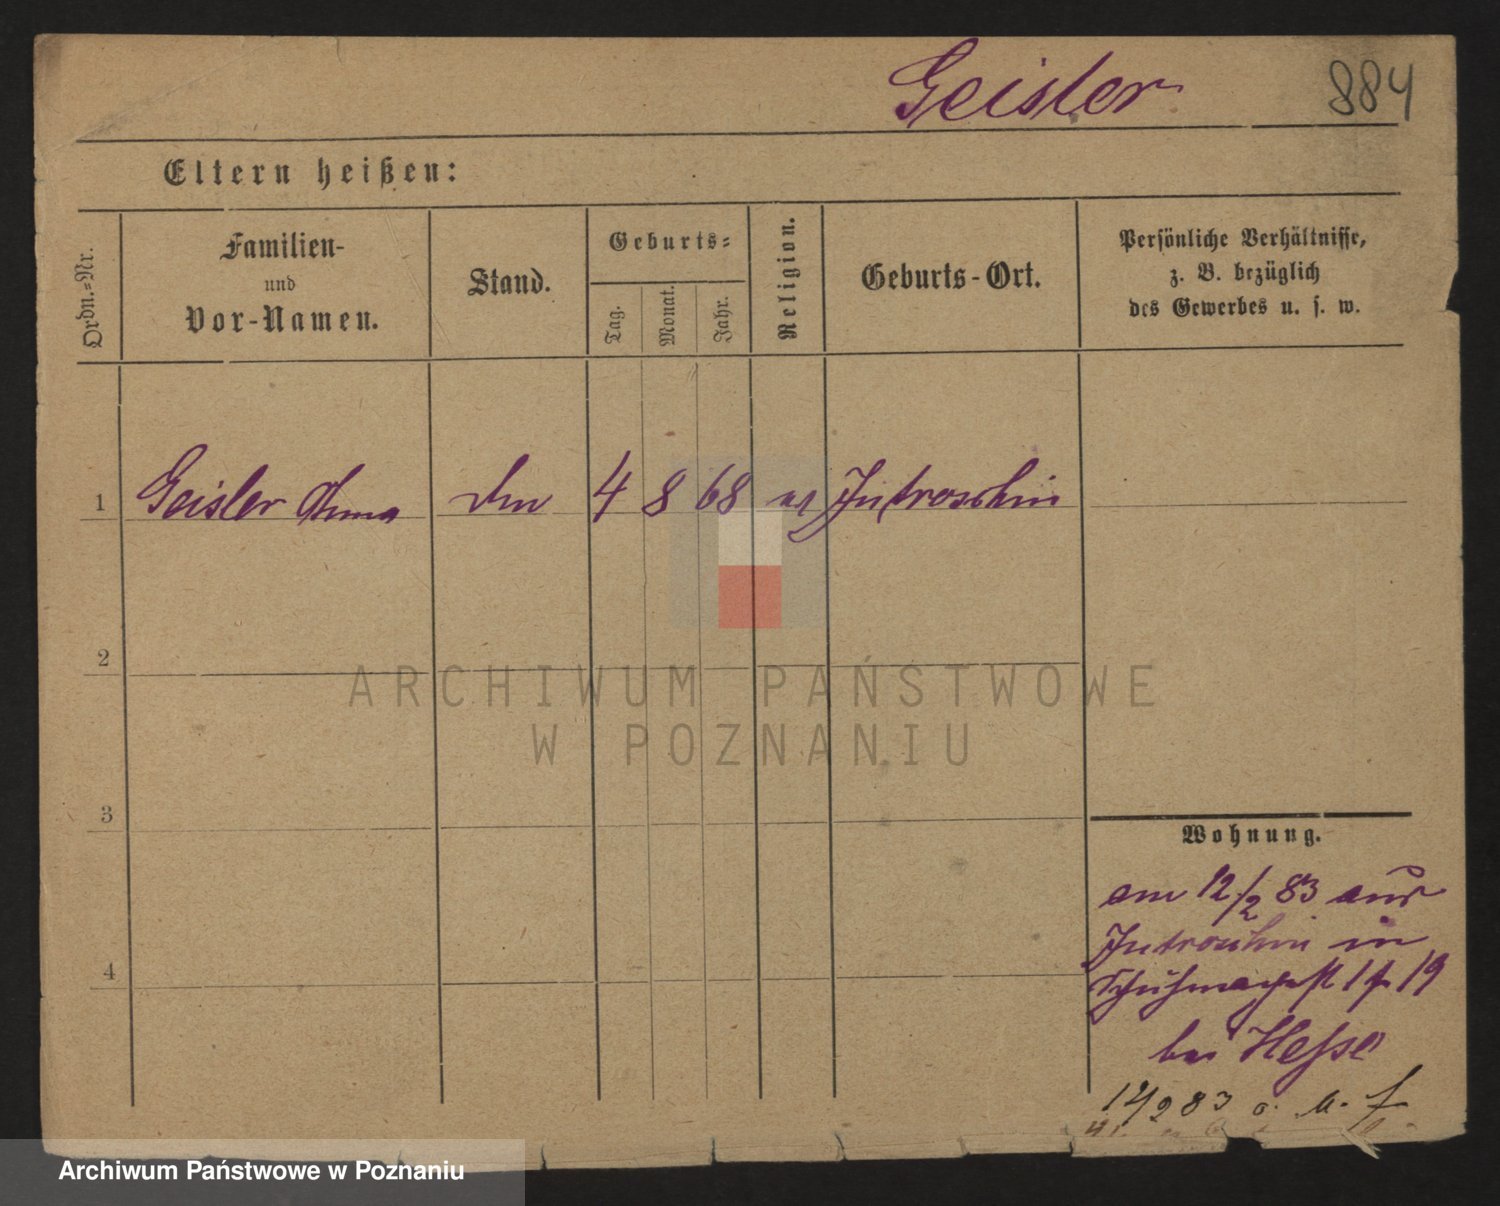 Geisler 884
Eltern heißen:
Ordn.=Nr.
Familien-
und
Vor-Namen.
Stand.
Geburts=
Tag.
Monat.
Jahr.
Religion.
Geburts-Ort.
Persönliche Verhältnisse,
z. B. bezüglich
des Gewerbes u. s. w.
1 Geisler Anna 4 8 68 Jutroschin
2
3
4
Wohnung.
am 12/2 83 aus
Jutroschin in
19
bei Hesse
2 83
ARCHIWUM PAŃSTWOWE
W POZNANIU
Archiwum Państwowe w Poznaniu